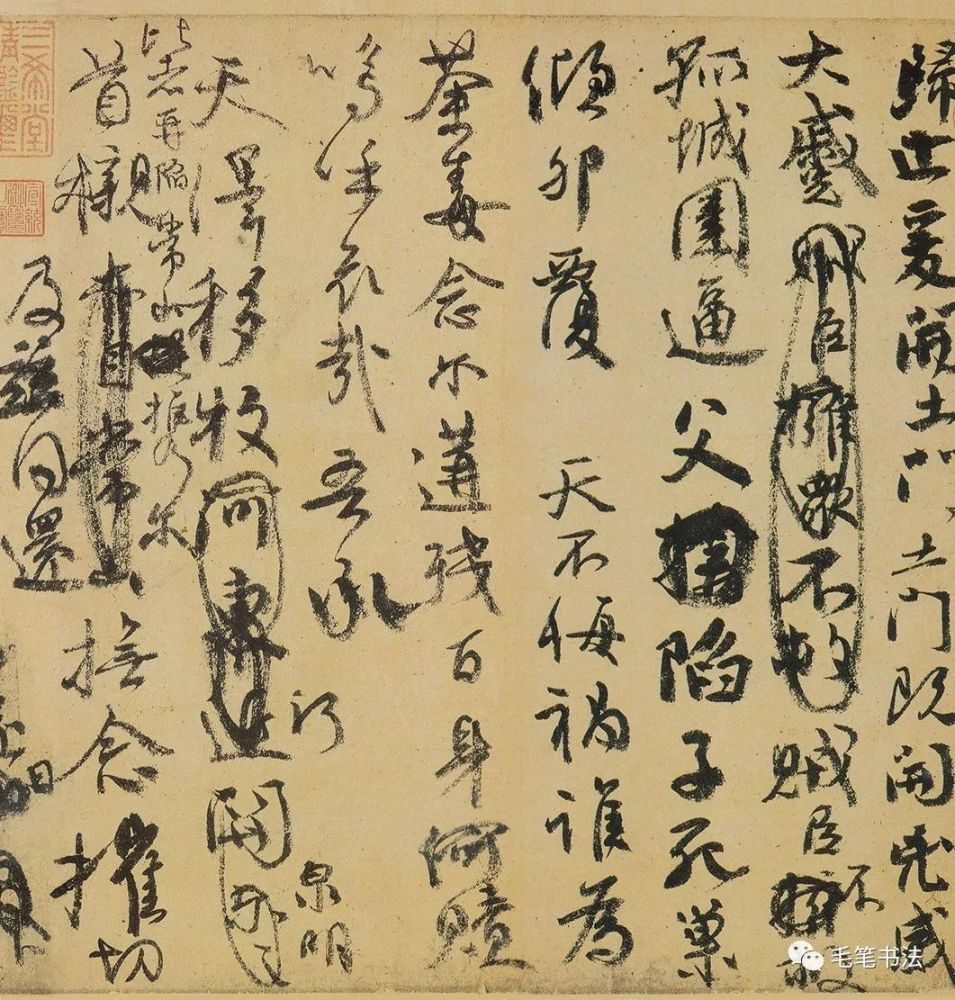 歸止爰開土門土門既開凶威
大蹙賊臣擁衆不救賊臣不救
孤城圍逼父擒陷子死巢
傾卵覆天不悔禍誰爲
荼毒念爾遘殘百身何贖
嗚呼哀哉吾承
泉明
天澤移牧河東近
比者再陷常山攜爾
首櫬亦自常山撫念摧切
及茲同還
三希堂精鑑璽
毛笔书法